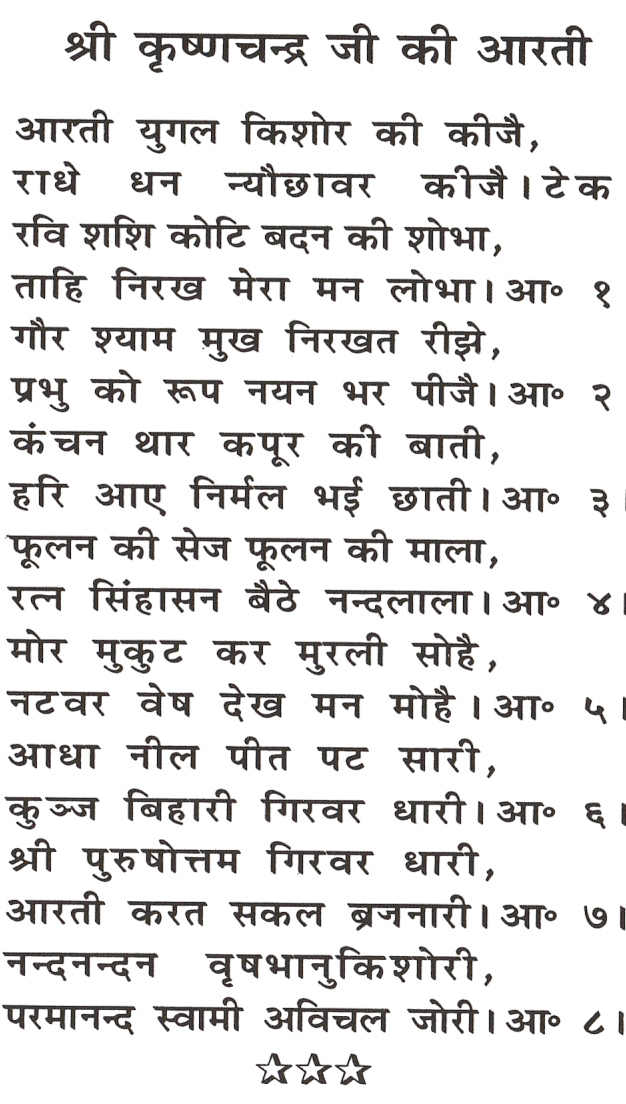 श्री कृष्णचन्द्र जी की आरती
आरती युगल किशोर की कीजै,
राधे धन न्यौछावर कीजै। टेक
रवि शशि कोटि बदन की शोभा,
ताहि निरख मेरा मन लोभा। आ॰ १
गौर श्याम मुख निरखत रीझे,
प्रभु को रूप नयन भर पीजै। आ॰ २
कंचन थार कपूर की बाती,
हरि आए निर्मल भई छाती। आ॰ ३।
फूलन की सेज फूलन की माला,
रत्न सिंहासन बैठे नन्दलाला। आ॰ ४।
मोर मुकुट कर मुरली सोहै,
नटवर वेष देख मन मोहै। आ॰ ५।
आधा नील पीत पट सारी,
कुञ्ज बिहारी गिरवर धारी। आ॰ ६।
श्री पुरुषोत्तम गिरवर धारी,
आरती करत सकल ब्रजनारी। आ॰ ७।
नन्दनन्दन वृषभानुकिशोरी,
परमानन्द स्वामी अविचल जोरी। आ॰ ८।